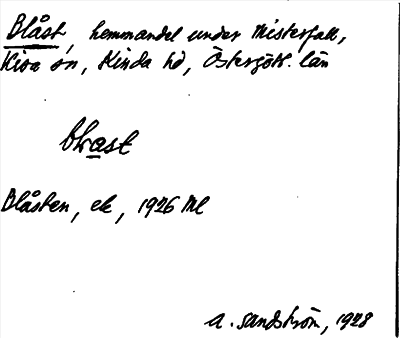 Blåst, hemmandel under Misterfall,
Kisa sn, Kinda hd, Östergötl. län
blast
Blåsten, ek, 1926 Ml
A. Sandström, 1928